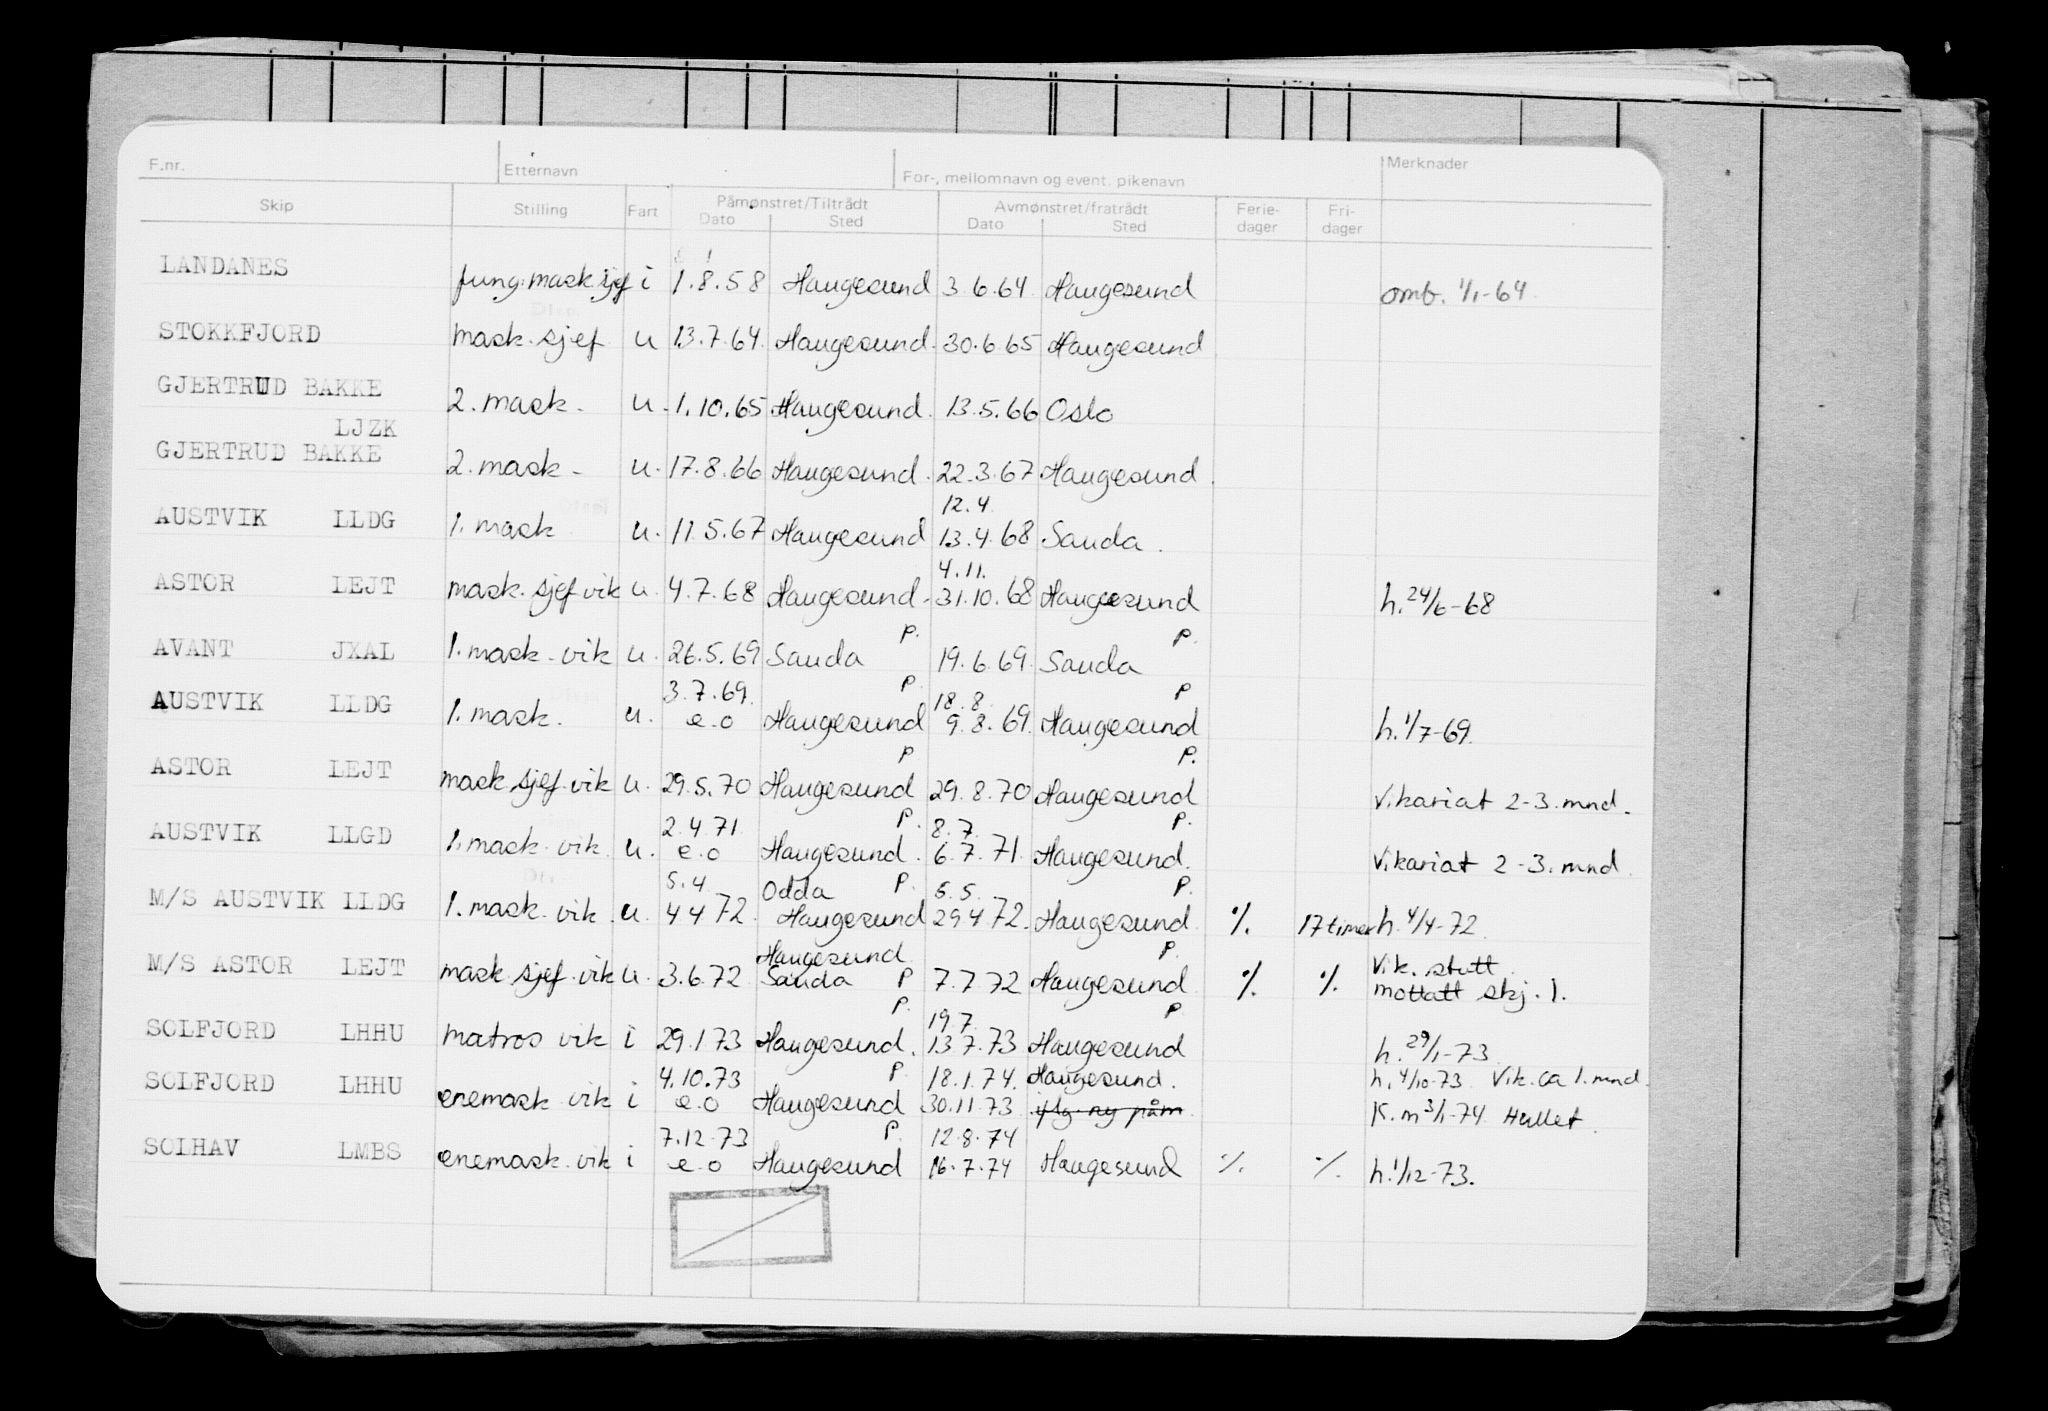 F.nr. Etternavn For-, mellomnavn og event. pikenavn Merknader
Skip Stilling Fart Påmønstret/Tiltrådt Avmønstret/fratrådt Ferie- Fri-
Dato Sted Dato Sted dager dager
LANDANES fung. mask sjef i 1.8.58 Haugesund 3.6.64 Haugesund omb. 1/1-64
STOKKFJORD mask. sjef u 13.7.64. Haugesund. 30.6.65 Haugesund
GJERTRUD BAKKE 2. mask. u. 1.10.65 Haugesund. 13.5.66 Oslo
LJZK
GJERTRUD BAKKE 2. mask. u. 17.8.66 Haugesund. 22.3.67 Haugesund.
12.4.
AUSTVIK LLDG 1. mask u. 11.5.67 Haugesund 13.4.68 Sauda.
4.11.
ASTOR LEJT mask. sjef vik u. 4.7.68 Haugesund. 31.10.68 Haugesund h. 24/6-68
P. P.
AVANT JXAL 1. mask. vik u. 26.5.69 Sauda 19.6.69. Sauda
3.7.69. P. 18.8. P
AUSTVIK LLDG 1. mask. u. e.o Haugesund 9.8.69. Haugesund h. 1/7-69.
P P.
ASTOR LEJT mask sjef. vik u. 29.5.70 Haugesund 29.8.70 Haugesund Vikariat 2-3. mnd.
2.4.71. P. 8.7. P.
AUSTVIK LLGD 1. mask. vik. u. e.o Haugesund. 6.7.71. Haugesund. Vikariat 2-3. mnd.
5.4. Odda P. 5.5. P.
M/S AUSTVIK LLDG 1. mask. vik. u. 4 4 72 Haugesund 29 4 72. Haugesund % 17 timer h. 4/4-72.
Haugesund. P. Vik. slutt.
M/S ASTOR LEJT mask sjef. vik u. 3.6.72 Sauda P 7.7 72 Haugesund % % mottatt skj. 1.
P. 19.7. P
SOLFJORD LHHU matros vik i 29.1 73 Haugesund. 13.7.73 Haugesund h. 29/1-73
4.10.73 P. 18.1.74. Haugesund. h. 4/10-73. Vik. ca 1. mnd.
SOLFJORD LHHU enemask vik i e.o Haugesund 30.11.73 iflg. ny påm. K.m 3/1-74 Hullet.
7.12.73 P. 12.8.74
SOLHAV LMBS enemask. vik i e.o Haugesund 16.7.74 Haugesund % % h. 1/12-73.